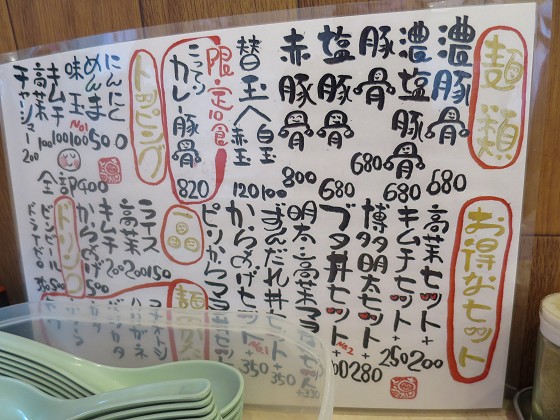 麺類
濃豚骨 680
濃塩豚骨 680
豚骨 680
塩豚骨 680
赤豚骨 800
替玉 白玉 100
赤玉 120
限定10食
こってりカレー豚骨 820
トッピング
にんにく 0
めんま 50
味玉 100 No.1
キムチ 100
高菜 100
チャーシュー 200
全部 400
お得なセット
高菜セット +200
キムチセット +250
博多明太セット +280
ブタ丼セット No.2
明太・高菜マヨ丼セット +330
ずんだれ丼セット +350
からあげセット No.1 +350
ピリからマヨ丼セット
一品
ライス 150
高菜 200
キムチ 200
からあげ 500
ドリンク
ビンビール
麺